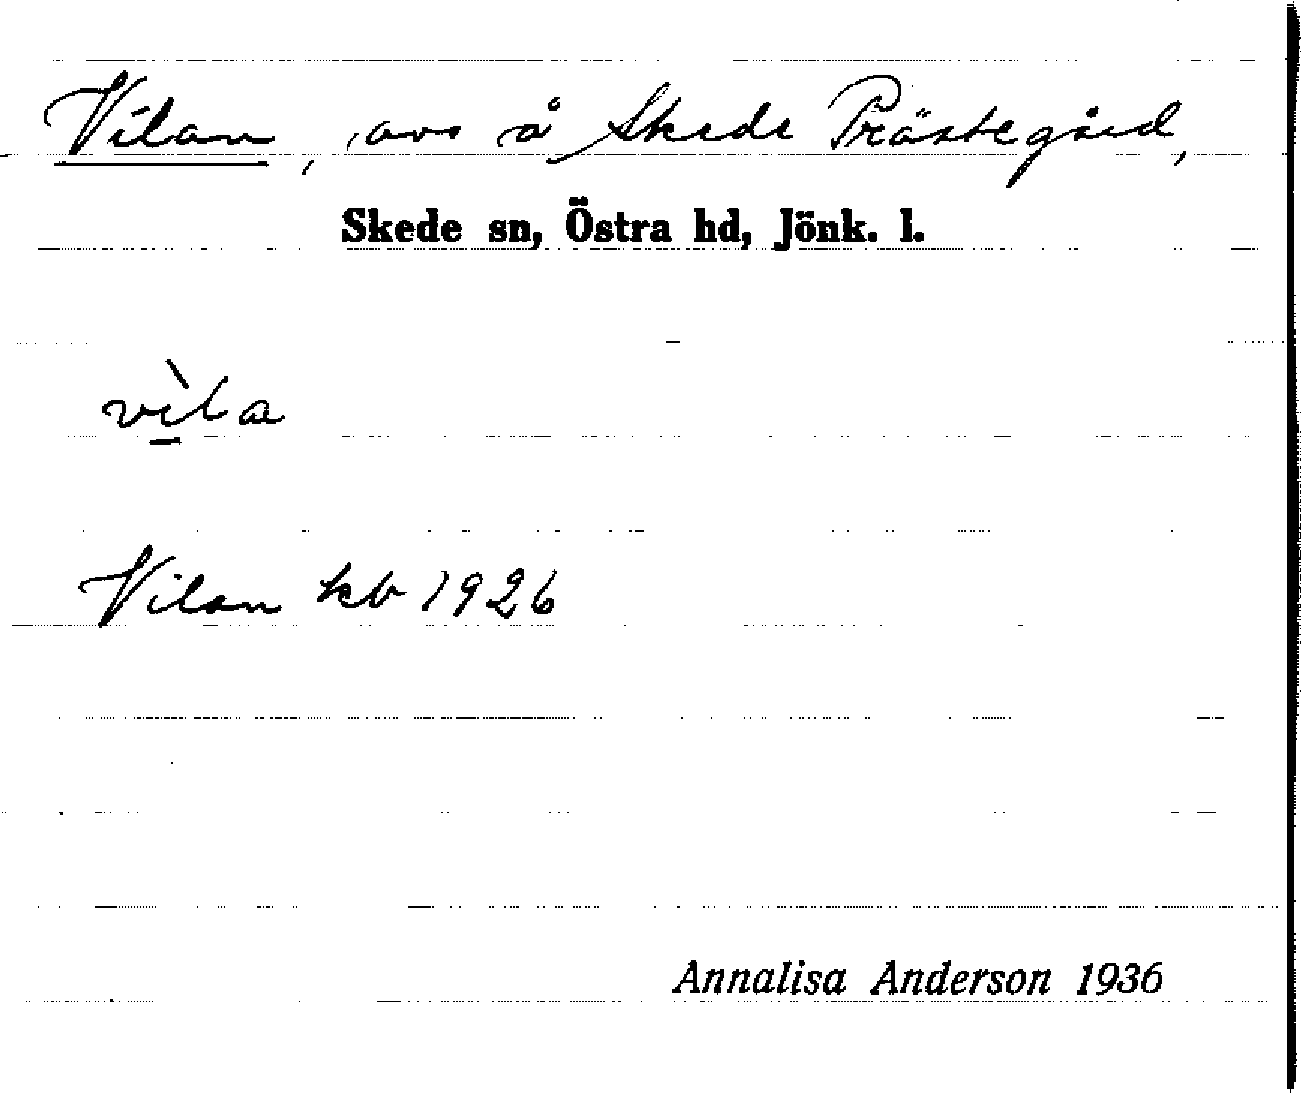 Vilan, avs å Skede Prästegård,
Skede sn, Östra hd, Jönk. l.
vìla
Vilan kb 1926
Annalisa Anderson 1936